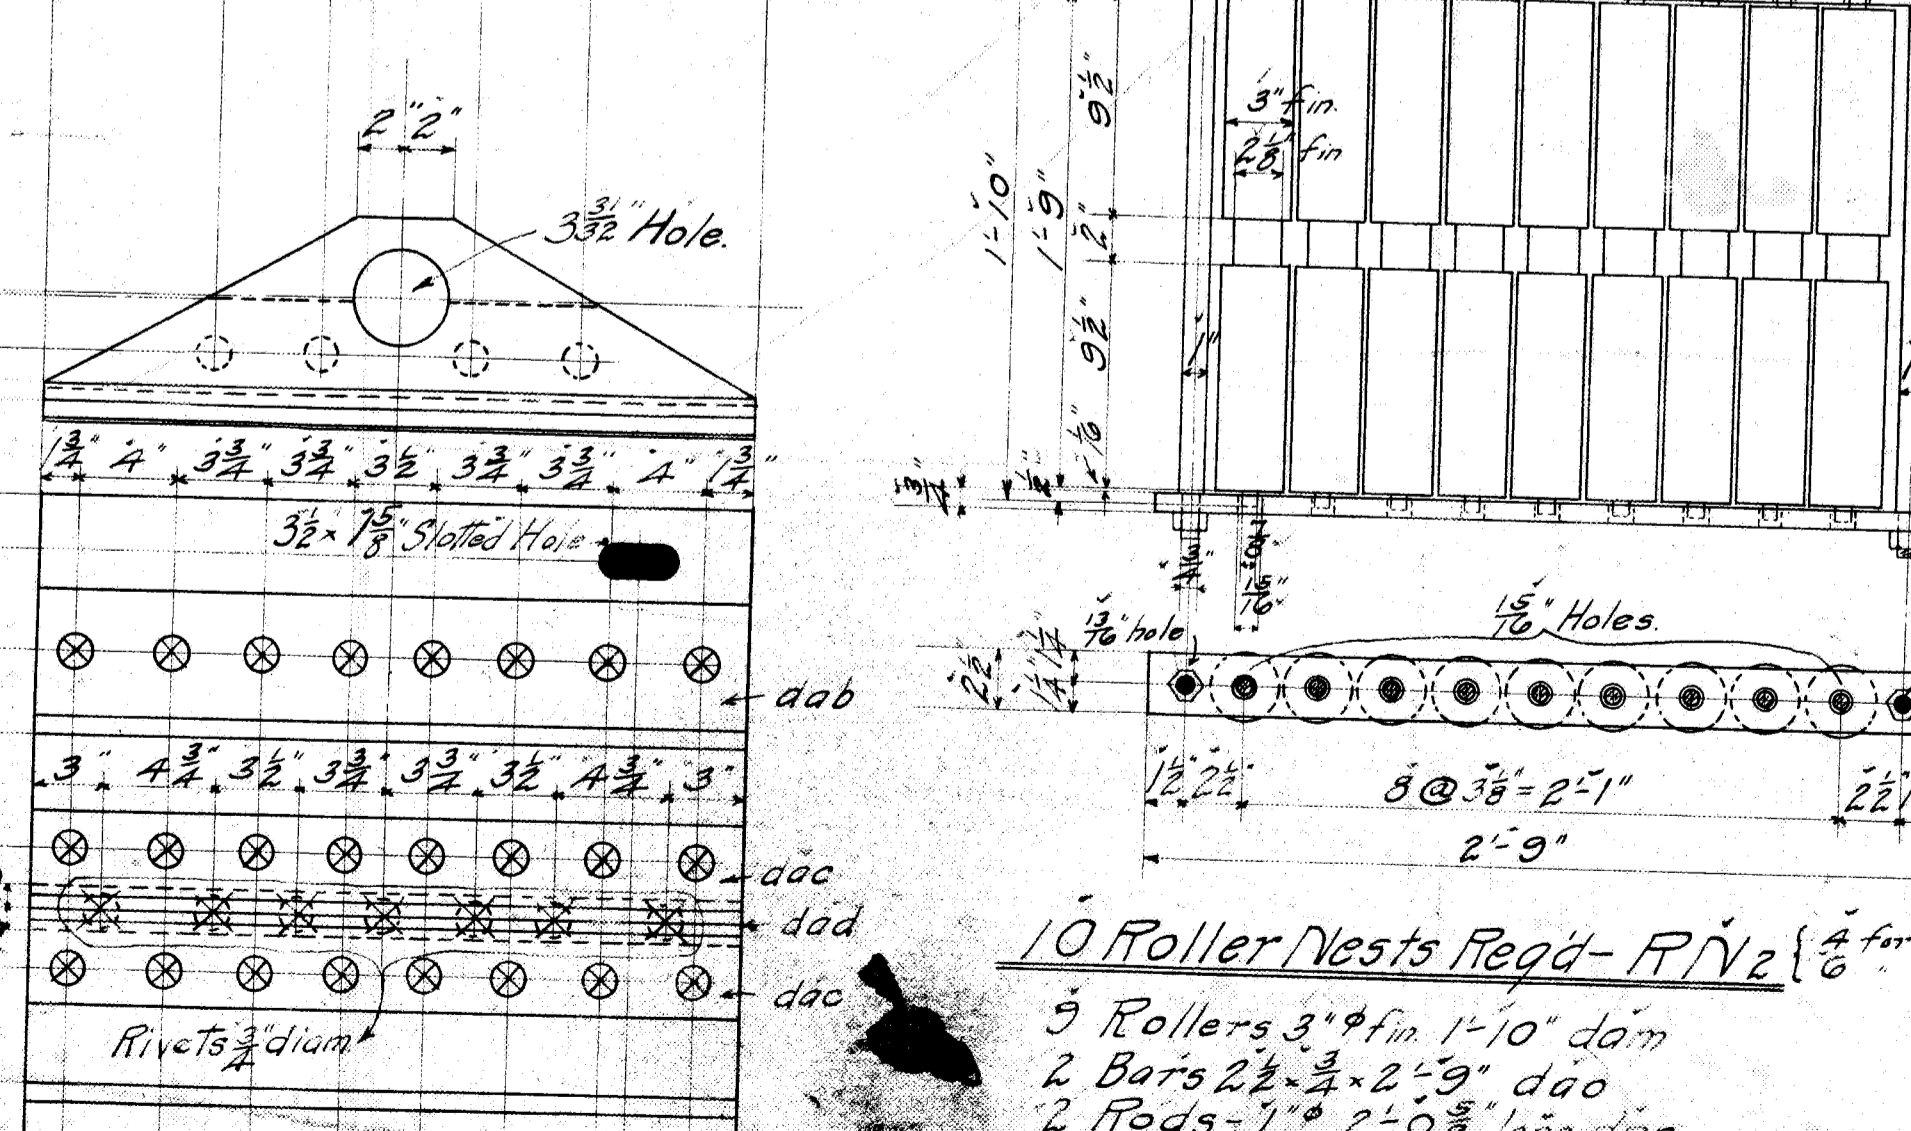 2" 2"
3 31/32" Hole.
1 3/4" 4" 3 3/4" 3 3/4" 3 1/2" 3 3/4" 3 3/4" 4" 1 3/4"
3 1/2 x 1 5/8" Slotted Hole
dab
3" 4 3/4" 3 1/2" 3 3/4" 3 3/4" 3 1/2" 4 3/4" 3"
dac
dad
dac
Rivets 3/4" diam
3" fin.
2 1/8" fin
1'-10"
1'-9"
9 1/2"
2"
9 1/2"
1/16"
1"
15/16"
13/16" hole
15/16" Holes.
2 1/2"
1 1/4" 1 1/4"
1 1/2" 2 1/2" 8 @ 3 1/8" = 2'-1" 2 1/2"
2'-9"
10 Roller Nests Req'd - RN2 { 4 for
6 "
9 Rollers 3"φ fin. 1'-10" dam
2 Bars 2 1/2 x 3/4 x 2'-9" dao
2 Rods - 1"φ 2'-0 5/8" long